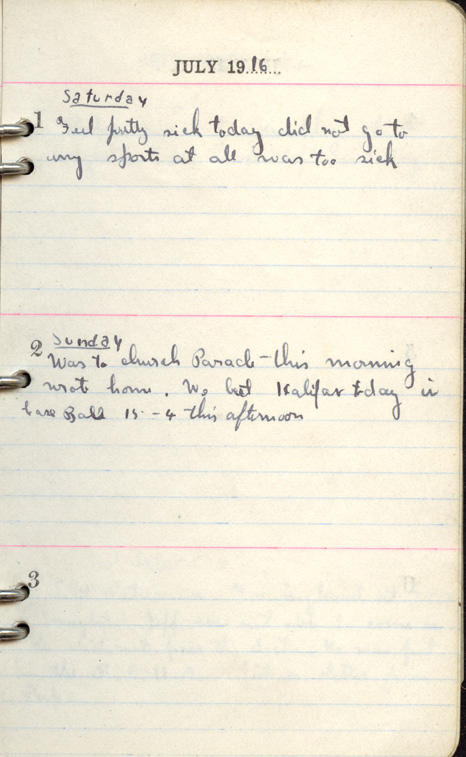 JULY 1916
Saturday
1 Feel pretty sick today did not go to
any sports at all was too sick
2 Sunday
Was to church Parade - this morning
wrote home. We beat Halifax today in
base Ball 15 - 4 this afternoon
3